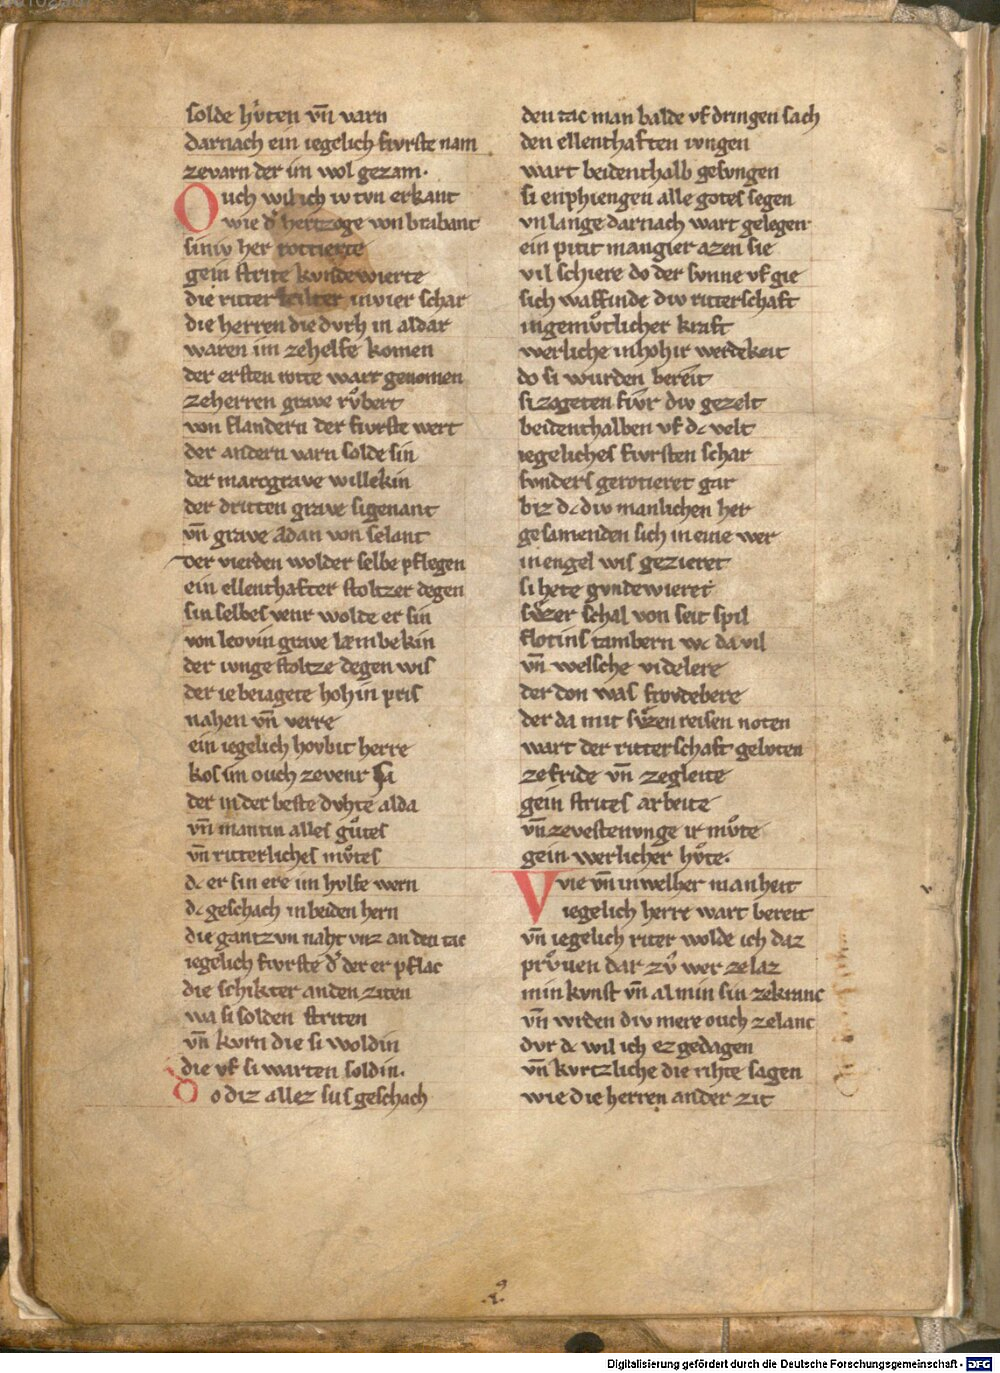 solde hv̊ten vn̄ varn
darnach ein iegelich fvrste nam
zevarn der im wol gezam.
Ouch wil ich iv tvn erkant
wie d͛ hertzoge von brabant
siniv her rottierte
gein strite kvndewierte
die ritter schilter in vier schar
die herren die dvrh in aldar
waren im zehelfe komen
der ersten rotte wart genomen
zeherren grave rv̊bert
von flandern der fvrste wert
der andern varn solde sin
der marcgrave willekin
der dritten grave sigenant
vn̄ grave Adan von selant
der vierden wolder selbe pflegen
ein ellenthafter stoltzer degen
sin selbes venr wolde er sin
von leovin grave læmbekin
der ivnge stoltze degen wis
der ie beiagete hoh in pris
nahen vn̄ verre
ein iegelich hovbit herre
kos im ouch zevenr sa
der in der beste dvhte alda
vn̄ mantin alles gv̊tes
vn̄ ritterliches mv̊tes
dc er sin ere im hvlfe wern
dc geschach in beiden hern
die gantzvn naht vnz an den tac
iegelich fvrste d͛ der er pflac
die schikter an den ziten
wa si solden striten
vn̄ kvrn die si woldin
die vf si warten soldin.
Do diz allez sus geschach
den tac man balde vf dringen sach
den ellenthaften ivngen
wart beidenthalb gesvngen
si enphiengen alle gotes segen
vn lange darnach wart gelegen
ein pitit mangier azen sie
vil schiere do der svnne vf gie
sich waffinde div ritterschaft
in gemv̊tlicher kraft
werliche in hohir werdekeit
do si wurden bereit
si zogeten fvr div gezelt
beidenthalben vf dc velt
iegeliches fvrsten schar
svnders gerotieret gar
biz dc div manlichen her
gesamenden sich in eine wer
in engel wis gezieret
si hete gvndewieret
sv̊zer schal von seit spil
flotins tambern wc da vil
vn̄ welsche videlere
der don was frovdebere
der da mit sv̊zen reisen noten
wart der ritterschaft geboten
zefride vn̄ zegleite
gein strites arbeite
vn̄ zevestenvnge ir mv̊te
gein werlicher hv̊te.
Vvie vn̄ in welher manheit
iegelich herre wart bereit
vn̄ iegelich riter wolde ich daz
prv̊uen dar zv̊ wer ze laz
min kvnst vn̄ al min sin zekranc
vn̄ wrden div mere ouch zelanc
dvr dc wil ich ez gedagen
vn̄ kvrtzliche die rihte sagen
wie die herren an der zit
2.
Digitalisierung gefördert durch die Deutsche Forschungsgemeinschaft - DFG